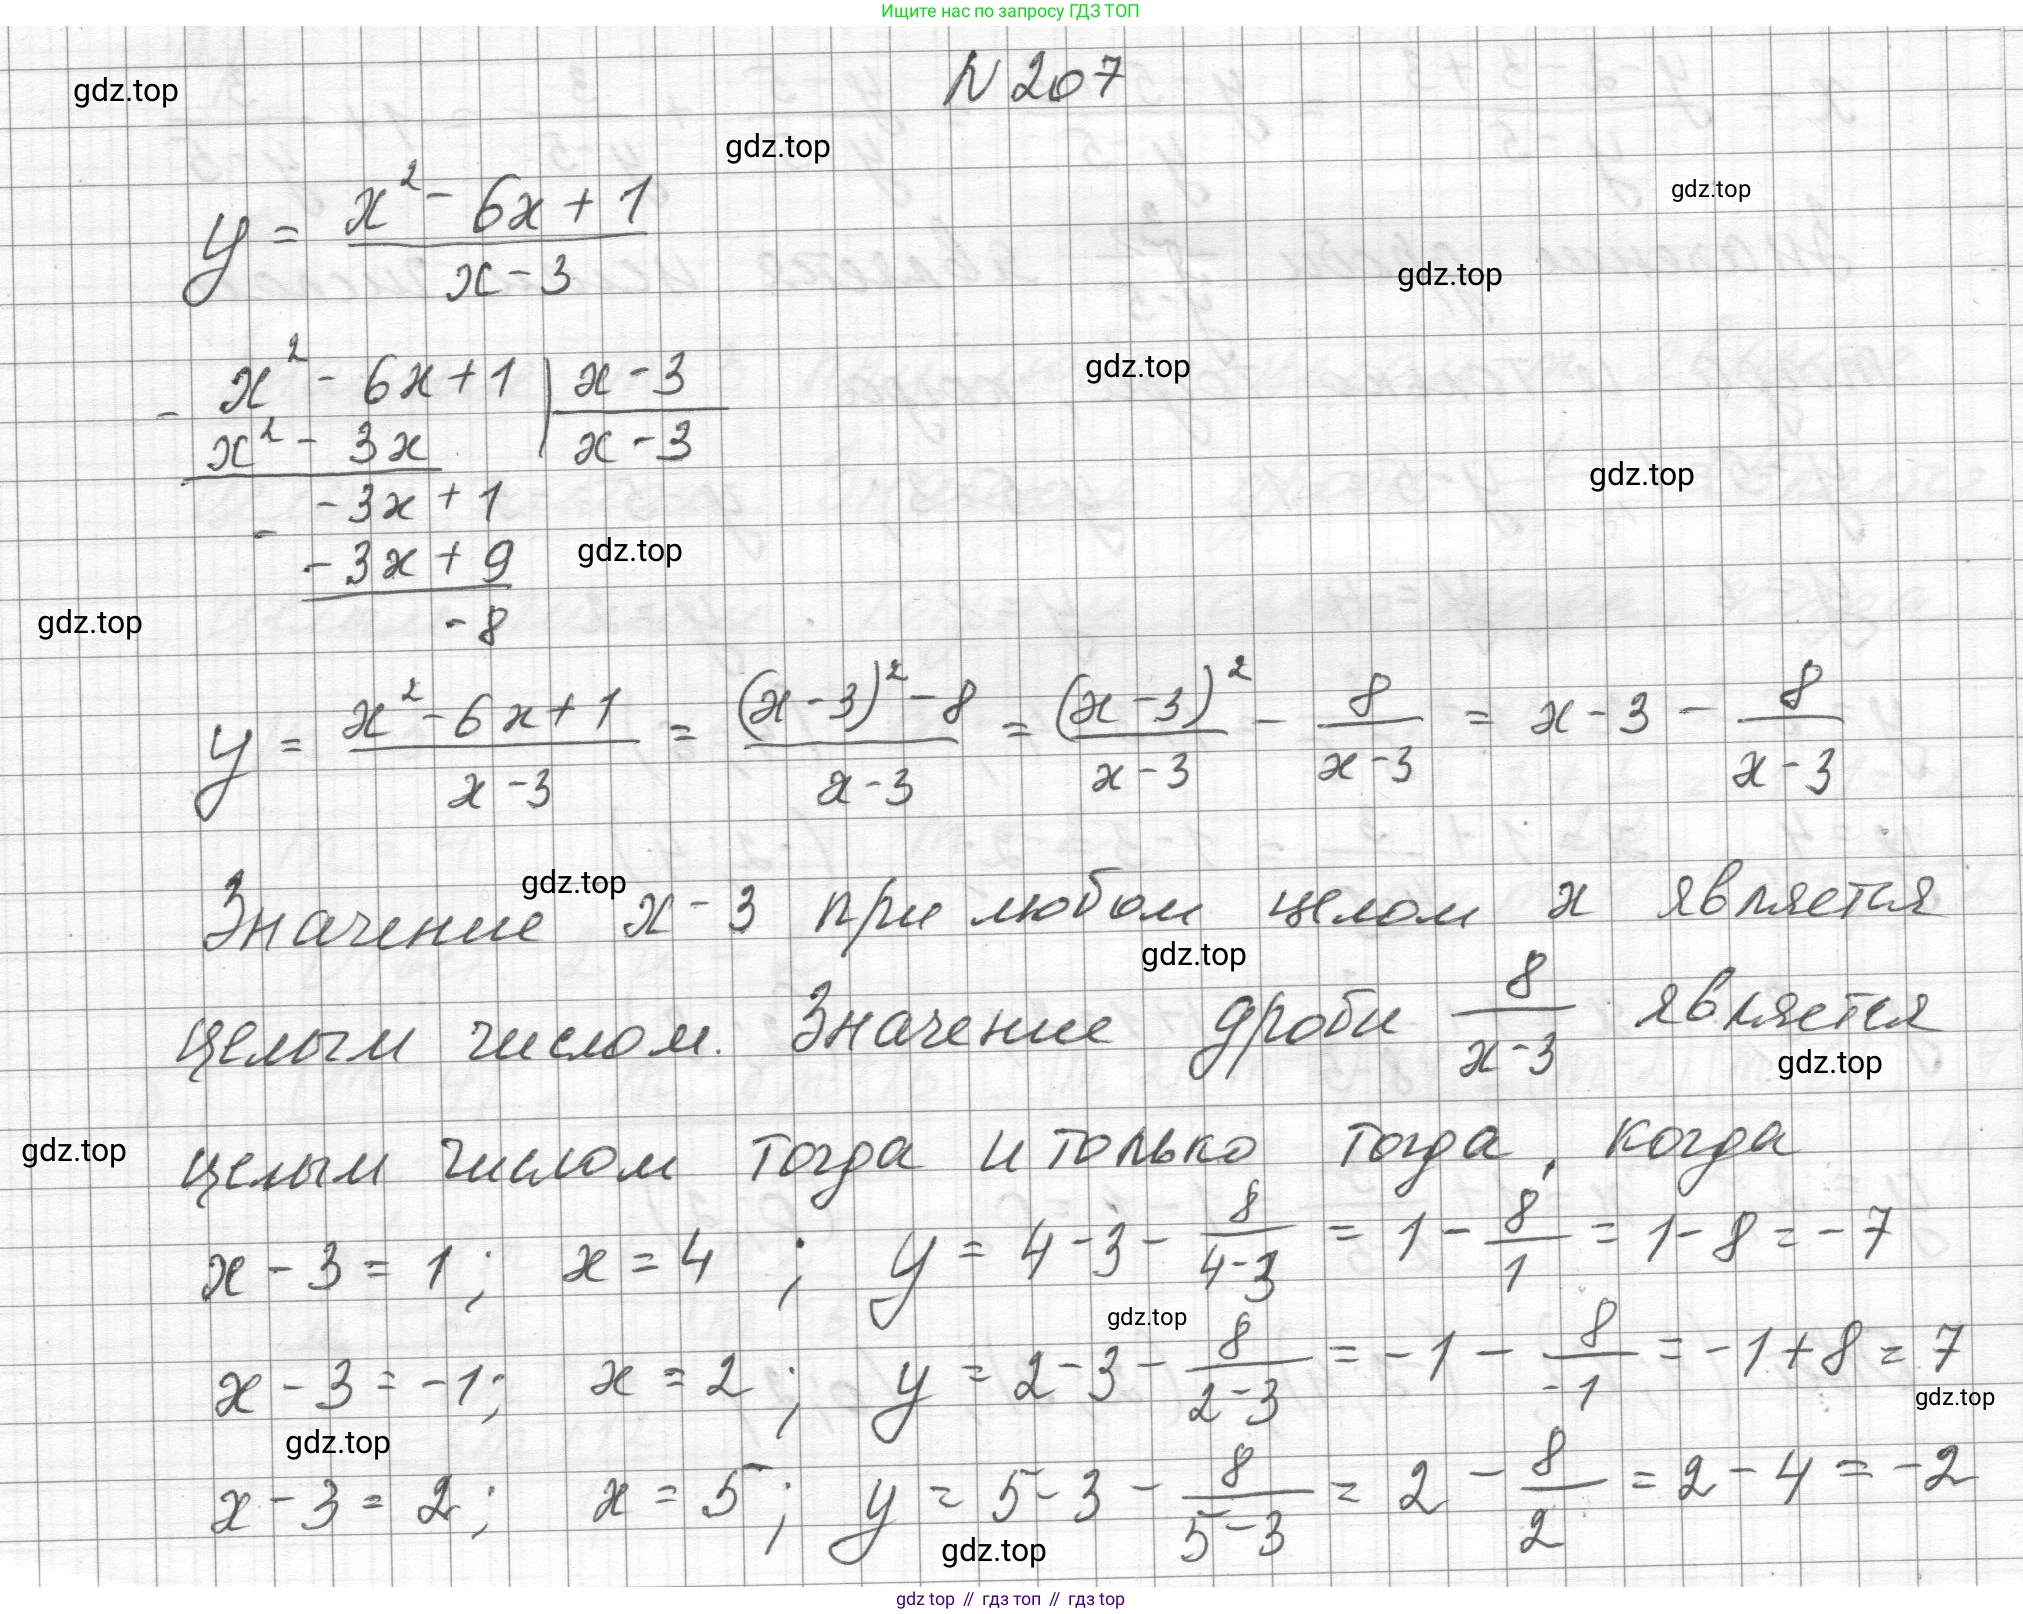 Ищите нас по запросу ГДЗ ТОП
N 207
gdz.top
gdz.top
gdz.top
y = (x² - 6x + 1)/(x - 3)
gdz.top
gdz.top
- x² - 6x + 1 | x - 3
x² - 3x | x - 3
gdz.top
- 3x + 1
-
- 3x + 9
gdz.top
gdz.top
- 8
y = (x² - 6x + 1)/(x - 3) = ((x - 3)² - 8)/(x - 3) = (x - 3)²/(x - 3) - 8/(x - 3) = x - 3 - 8/(x - 3)
gdz.top
Значение x - 3 при любом целом x является
gdz.top
целым числом. Значение дроби 8/(x - 3) является
gdz.top
gdz.top
целым числом тогда и только тогда, когда
x - 3 = 1; x = 4; y = 4 - 3 - 8/(4 - 3) = 1 - 8/1 = 1 - 8 = - 7
gdz.top
x - 3 = - 1; x = 2; y = 2 - 3 - 8/(2 - 3) = - 1 - 8/(-1) = - 1 + 8 = 7
gdz.top
gdz.top
x - 3 = 2; x = 5; y = 5 - 3 - 8/(5 - 3) = 2 - 8/2 = 2 - 4 = - 2
gdz.top
gdz top // гдз топ // гдз top